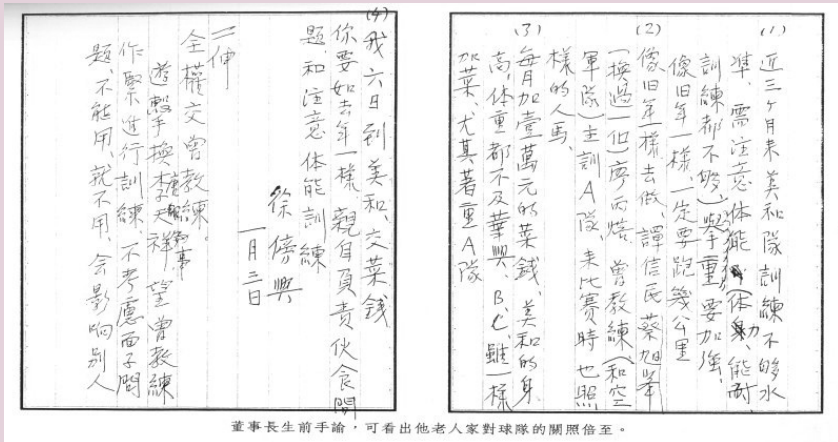 (1)
近三ヶ月來美和隊訓練不够水
準，需注意体能(体力、能耐
訓練都不够)與重要加強，
像旧年一樣一定要跑幾公里
(2)
像旧年一樣去做，譚信民蔡旭峯
一換過一但廖丙熔曾教練(和空
軍隊)主訓A隊，來比賽時也照
樣的人馬，
(3)
每月加壹萬元的菜錢，美和的身
高，体重都不及華興，B、C，雖一樣
加菜，尤其著重A隊
(4)
我六日到美和，交菜錢
你要如去年一樣，親自負責伙食問
題，和注意体能訓練
徐傍興
一月三日
二伸
全權交曾教練。
遊擊手換李天祥，望曾教練
作緊進行訓練，不考慮面子問
題，不能用，就不用，会影响別人
董事長生前手諭，可看出他老人家對球隊的關照倍至。